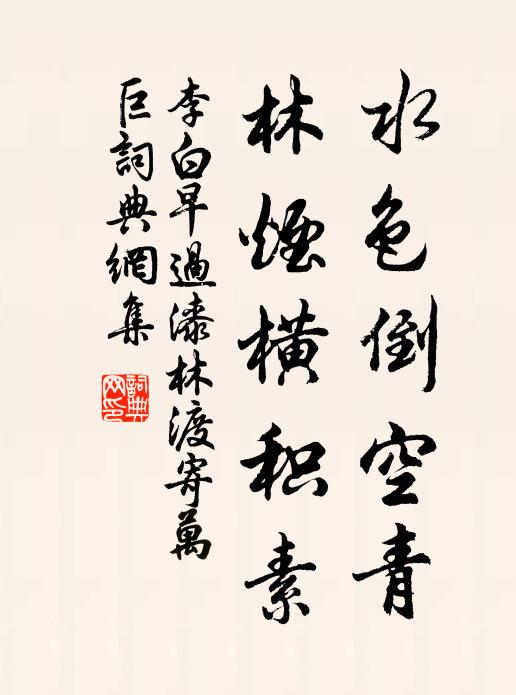 水色倒空青
林煙橫积素
李白早過漆林渡寄萬
巨詞典網集
詞典网印